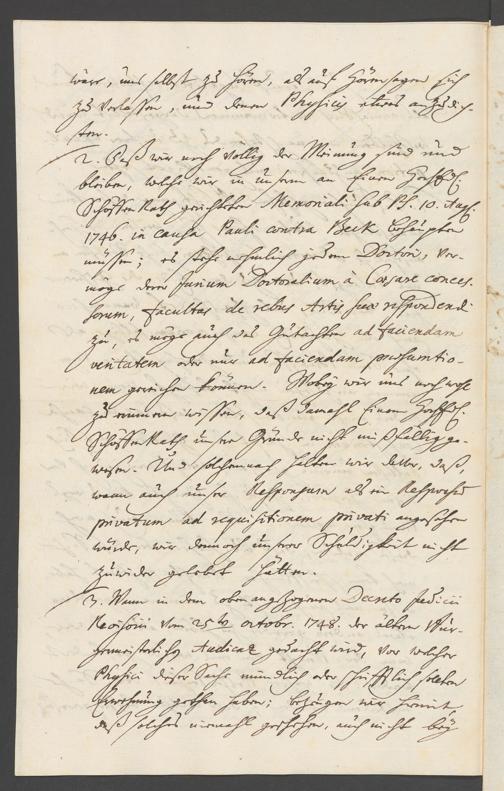 wäre, uns selbst zu hören, als auf Hörensagen sich
zu verlassen, und denen Physicis etwas anzudich-
ten.
2. Daß wir noch völlig der Meinung sind und
bleiben, welche wir in unserm an Einen
Schöffen Rath gerichteten Memoriali sub Ps. 10. Aug.
1746. in causa Pauli contra Beck behaupten
müssen; es stehe nehmlich jedem Doctori, ver-
möge derer Jurium Doctoralium à Cæsare conces-
sorum, facultas de rebus Artis suæ respondendi
zu, es möge auch das Gutachten ad faciendam
veritatem oder nur ad faciendam præsumtio-
nem gereichen können. Wobey wir uns noch wohl
zu erinnern wissen, daß damahl Einem
Schöffen Rath unsere Gründe nicht mißfällig ge-
wesen. Und solchemnach halten wir dafür, daß,
wann auch unser Responsum als ein Responsum
privatum ad requisitionem privati angesehen
würde, wir dennoch unserer Schuldigkeit nicht
zuwider gelebet hätten.
3. Wann in dem oben angezogenen Decreto
vom 25ten octobr. 1748. der ältern Bür-
germeisterlichen Audienz gedacht wird, vor welcher
Physici dieser Sache mündlich oder schrifftlich sollten
Erwehnung gethan haben; bezeugen wir hiermit,
daß solches niemahl geschehen, auch nicht bey